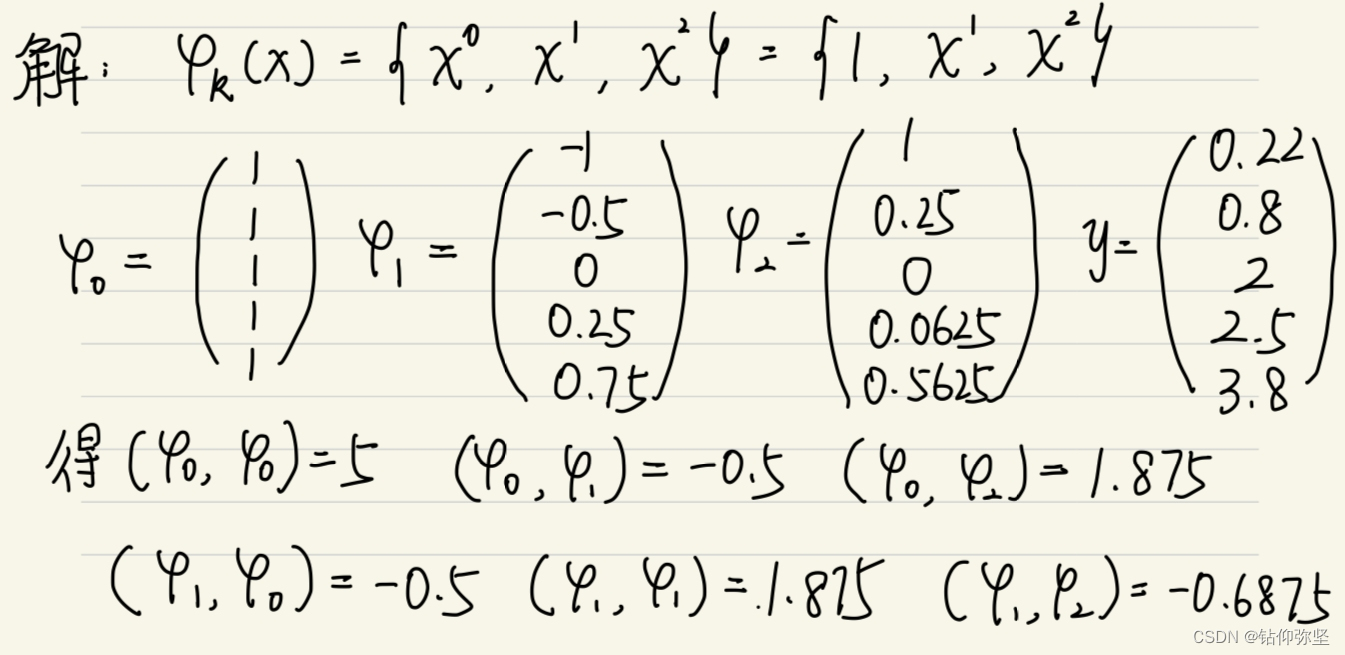 解: φₖ(x) = {x⁰, x¹, x²} = {1, x¹, x²}
φ₀ = (1 1 1 1 1) φ₁ = (-1 -0.5 0 0.25 0.75) φ₂ = (1 0.25 0 0.0625 0.5625) y = (0.22 0.8 2 2.5 3.8)
得 (φ₀, φ₀) = 5 (φ₀, φ₁) = -0.5 (φ₀, φ₂) = 1.875
(φ₁, φ₀) = -0.5 (φ₁, φ₁) = 1.875 (φ₁, φ₂) = -0.6875
CSDN @钻仰弥坚